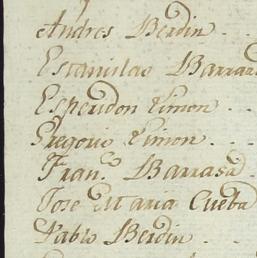 Andres Berdin . .
Estanislao Barras
Esperidon Simon . . .
Gregorio Simon . .
Fran.co Barrasa .
Jose Maria Cueba
Pablo Berdin . . .